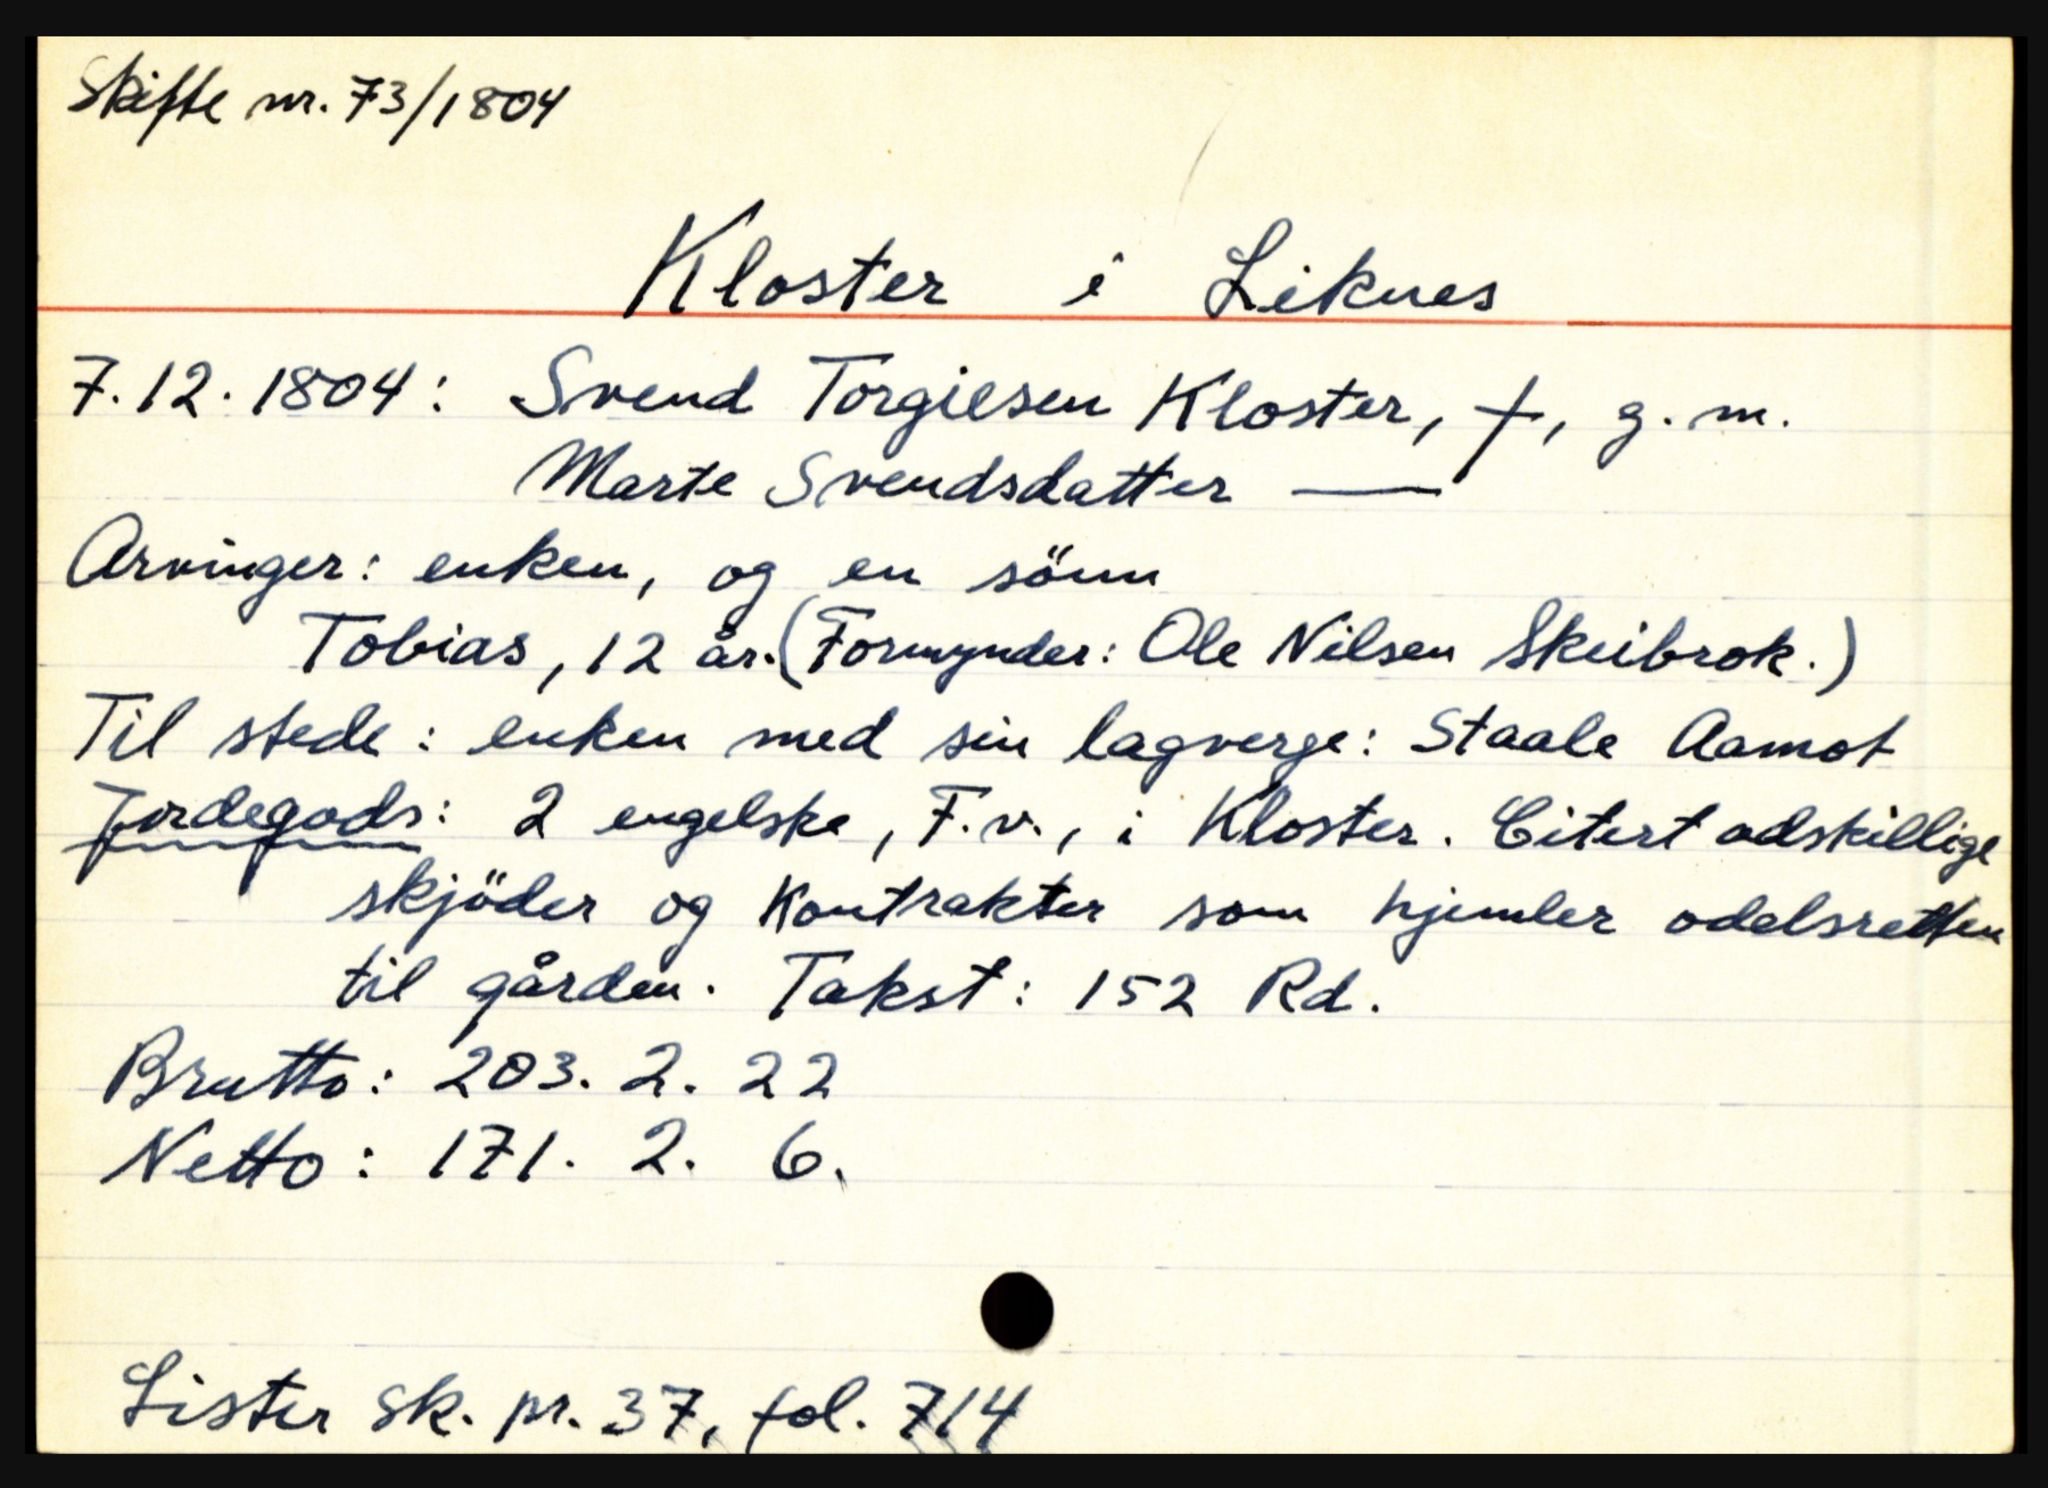 Skifte nr. 73/1804
Kloster i Liknes
7.12.1804: Svend Torgilsen Kloster, †, g. m.
Marte Svendsdatter —
Arvinger: enken, og en sönn
Tobias, 12 år. (Formynder: Ole Nilsen Skeibrok.)
Til stede: enken med sin lagverge: Staale Aamot
Jordegods: 2 engelske, F.v., i Kloster. Citert adskillige
skjöder og kontrakter som hjemler odelsretten
til gården. Takst: 152 Rd.
Brutto: 203. 2. 22
Netto: 171. 2. 6.
Lister sk. pr. 37, fol. 714